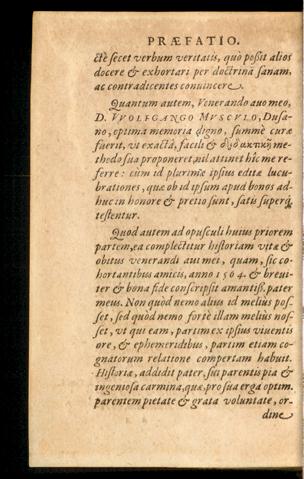 PRÆFATIO.
ctè secet verbum veritatis, quò possit alios
docere & exhortari per doctrinã sanam,
ac contradicentes conuincere.
Quantum autem, Venerando auo meo,
D. VVOLFGANGO MVSCVLO, Dusa-
no, optima memoria digno, summè curæ
fuerit, vt exactâ, facili & διδακτικῇ me-
thodo sua proponeret, nil attinet hîc me re-
ferre: cùm id plurimæ ipsius editæ lucu-
brationes, quæ ob id ipsum apud bonos ad-
huc in honore & pretio sunt, satis superq;
testentur.
Quod autem ad opusculi huius priorem
partem, ea complectitur historiam vitæ &
obitus venerandi aui mei, quam, sic co-
hortantibus amicis, anno 1564. & breui-
ter & bona fide conscripsit amantiss. pater
meus. Non quòd nemo alius id meliùs pos-
set, sed quòd nemo fortè illam meliùs nos-
set, vt qui eam, partim ex ipsius viuentis
ore, & ephemeridibus, partim etiam co-
gnatorum relatione compertam habuit.
Historiæ, addidit pater, sui parentis pia &
ingeniosa carmina, quæ, pro sua erga optim.
parentem pietate & grata voluntate, or-
dine